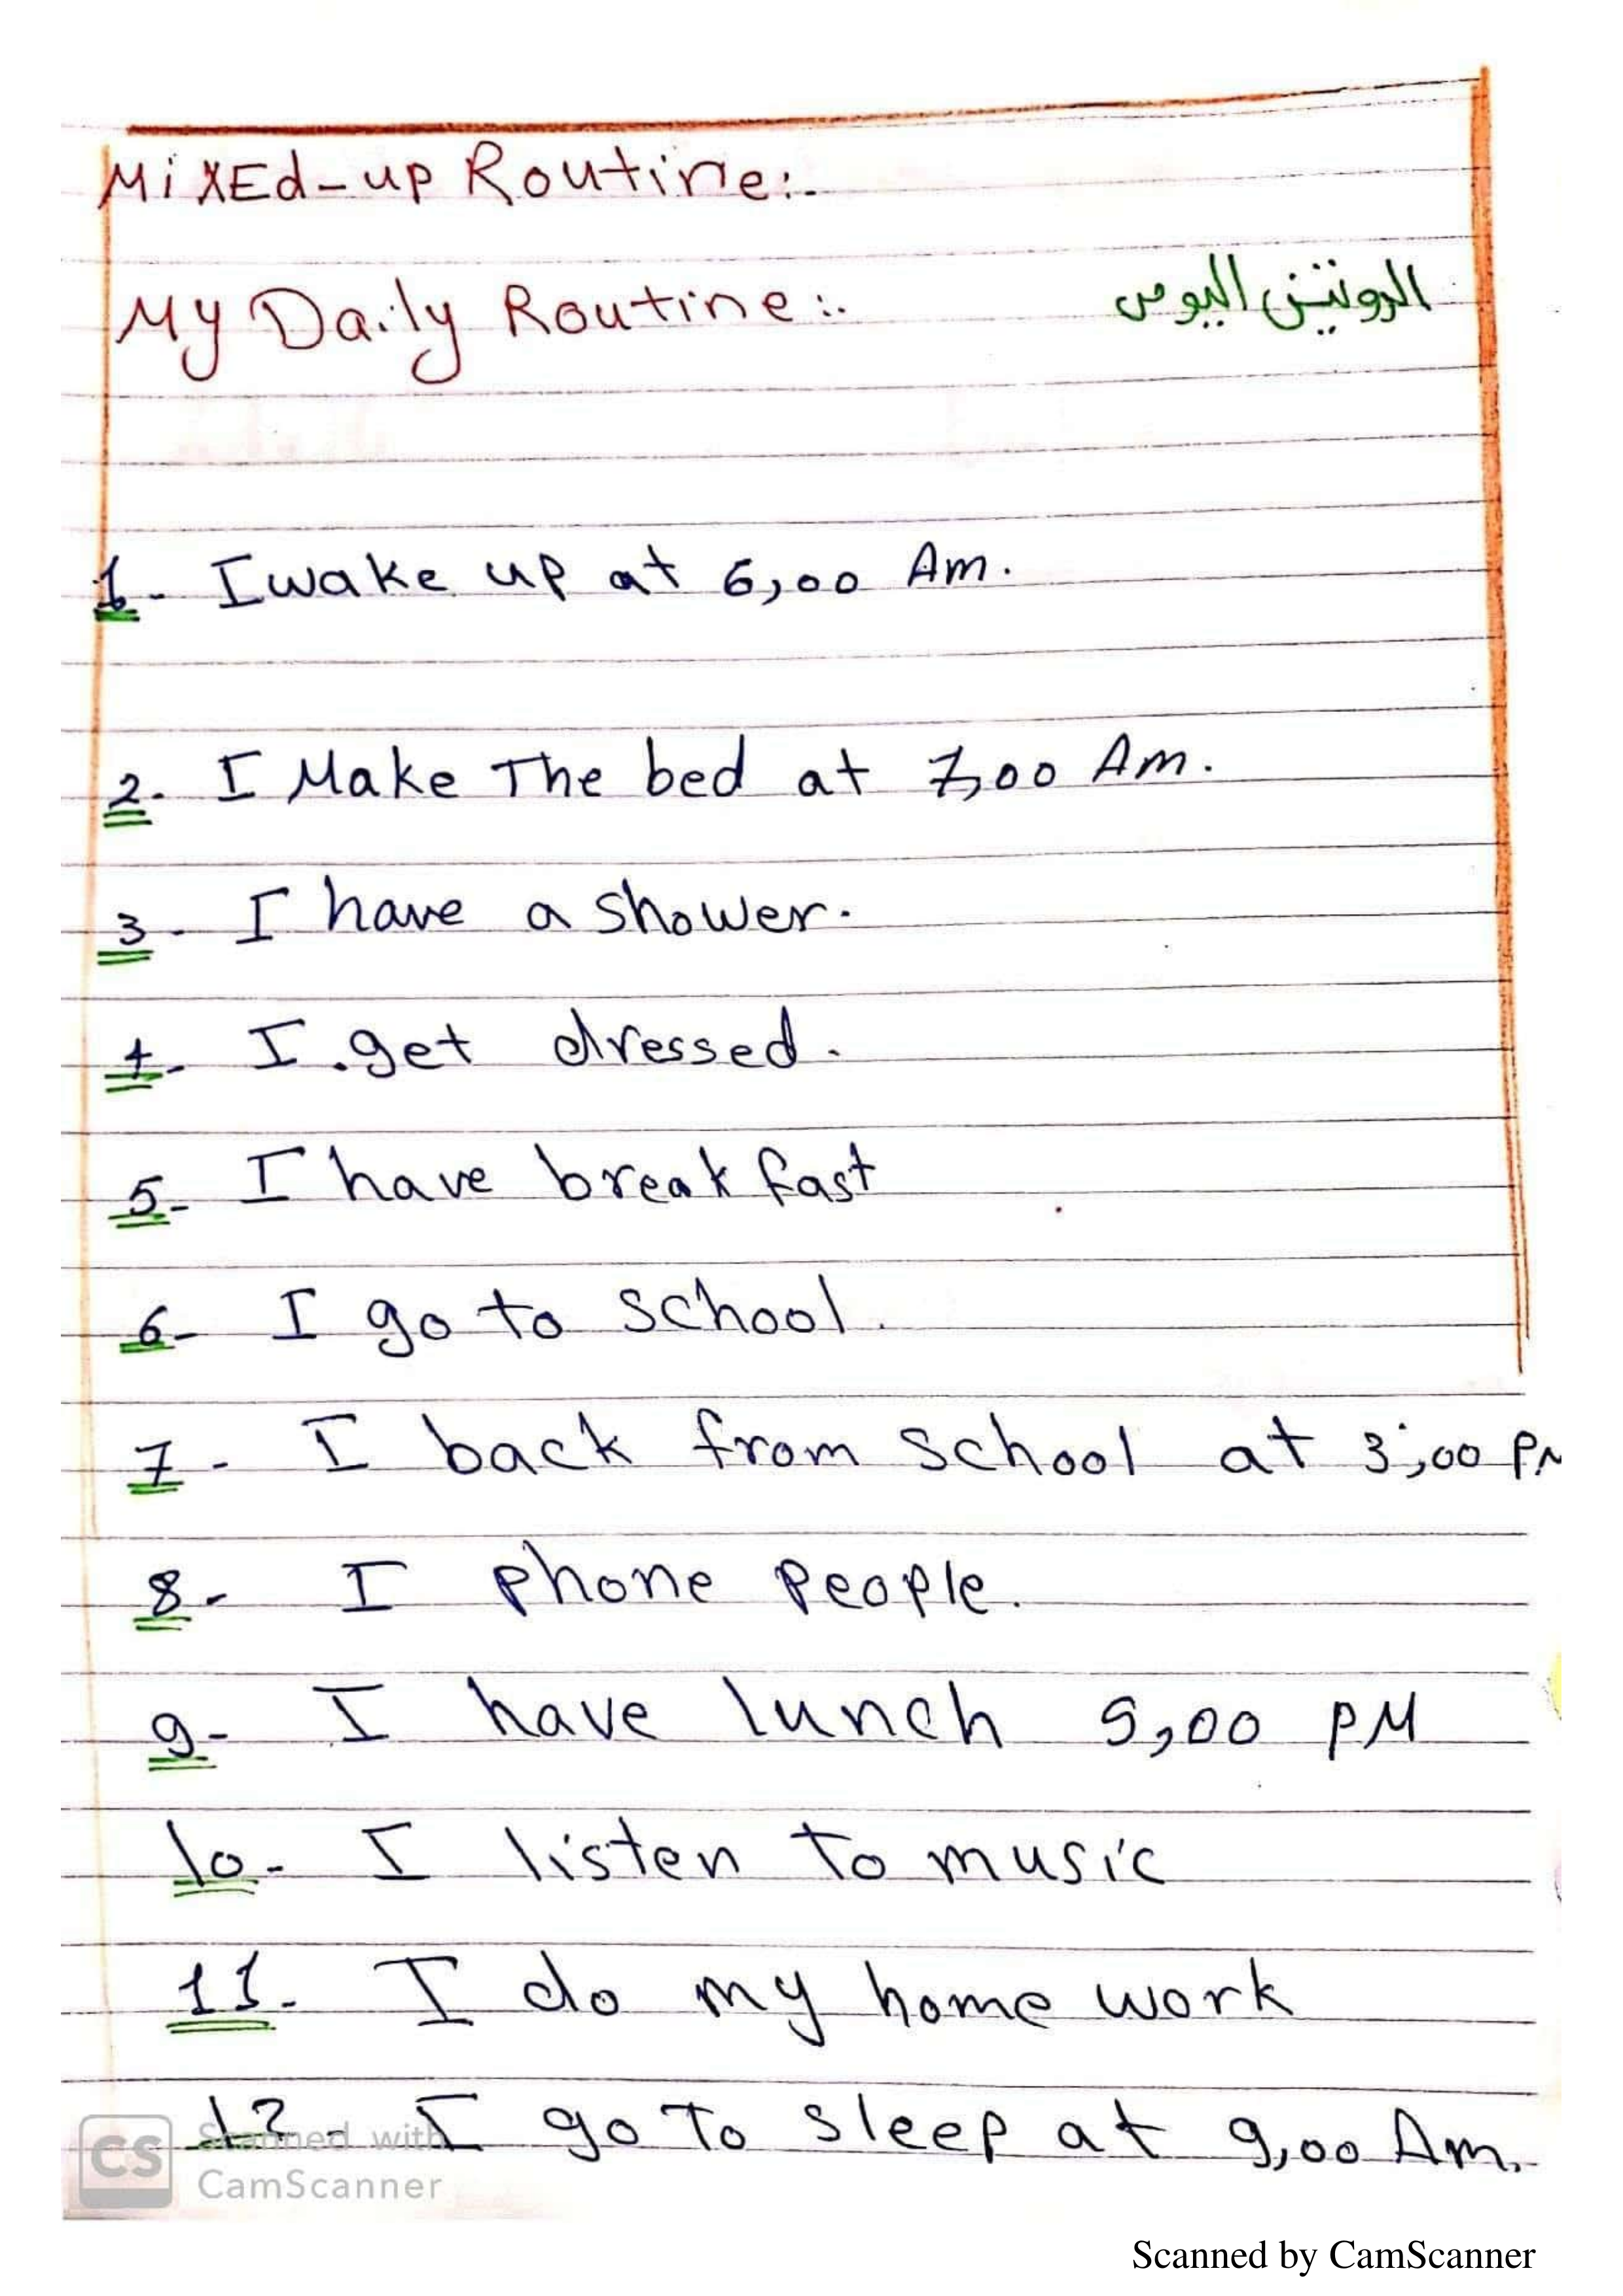 MiXEd-up Routine:-
My Daily Routine:- الروتين اليومي
1- I wake up at 6,00 Am.
2- I Make The bed at 7,00 Am.
3- I have a shower.
4- I get dressed.
5- I have break fast
6- I go to school.
7- I back from school at 3,00 PM
8- I phone people.
9- I have lunch 5,00 PM
10- I listen to music
11- I do my home work
12- I go To sleep at 9,00 Am.
CS Scanned with
CamScanner
Scanned by CamScanner